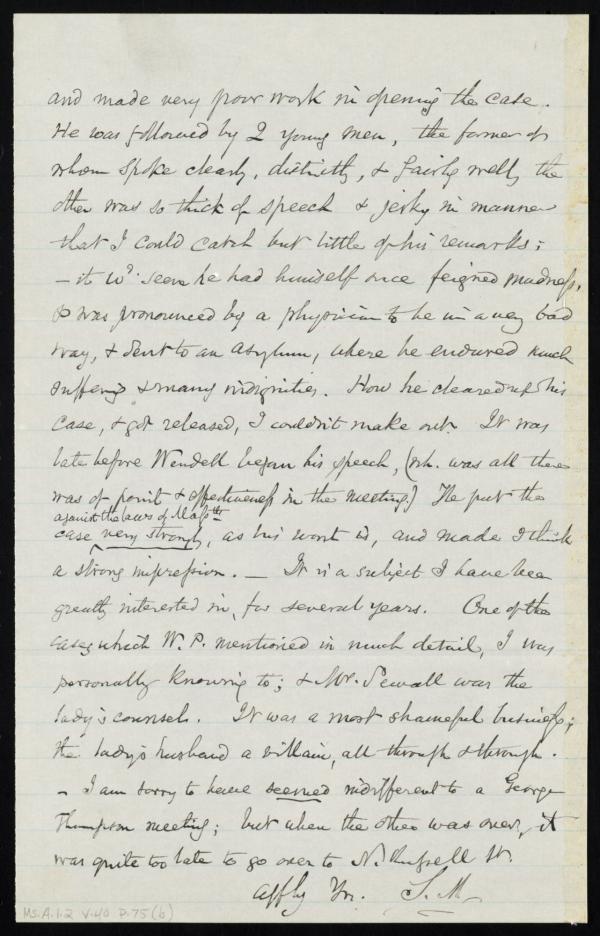 and made very poor work in opening the case.
He was followed by 2 young men, the former of
whom spoke clearly, distinctly, & fairly well, the
other was so thick of speech & jerky in manner
that I could catch but little of his remarks;
— it wd. seem he had himself once feigned madness,
& was pronounced by a physician to be in a very bad
way, & sent to an asylum, where he endured much
suffering & many indignities. How he cleared up his
case, & got released, I couldn't make out. It was
late before Wendell began his speech, (wh. was all there
was of point & effectiveness in the meeting.) He put the
against the laws of Masstts
case very strongly, as his wont is, and made I think
a strong impression. — It is a subject I have been
greatly interested in, for several years. One of the
cases which W. P. mentioned in much detail, I was
personally knowing to; & Mr. Sewall was the
lady's counsel. It was a most shameful business;
the lady's husband a villain, all through & through.
– I am sorry to have seemed indifferent to a George
Thompson meeting; but when the other was over, it
was quite too late to go over to N. Russell St.
Affly Yrs. S. M
MS.A.1.2 V.40 P.75(b)